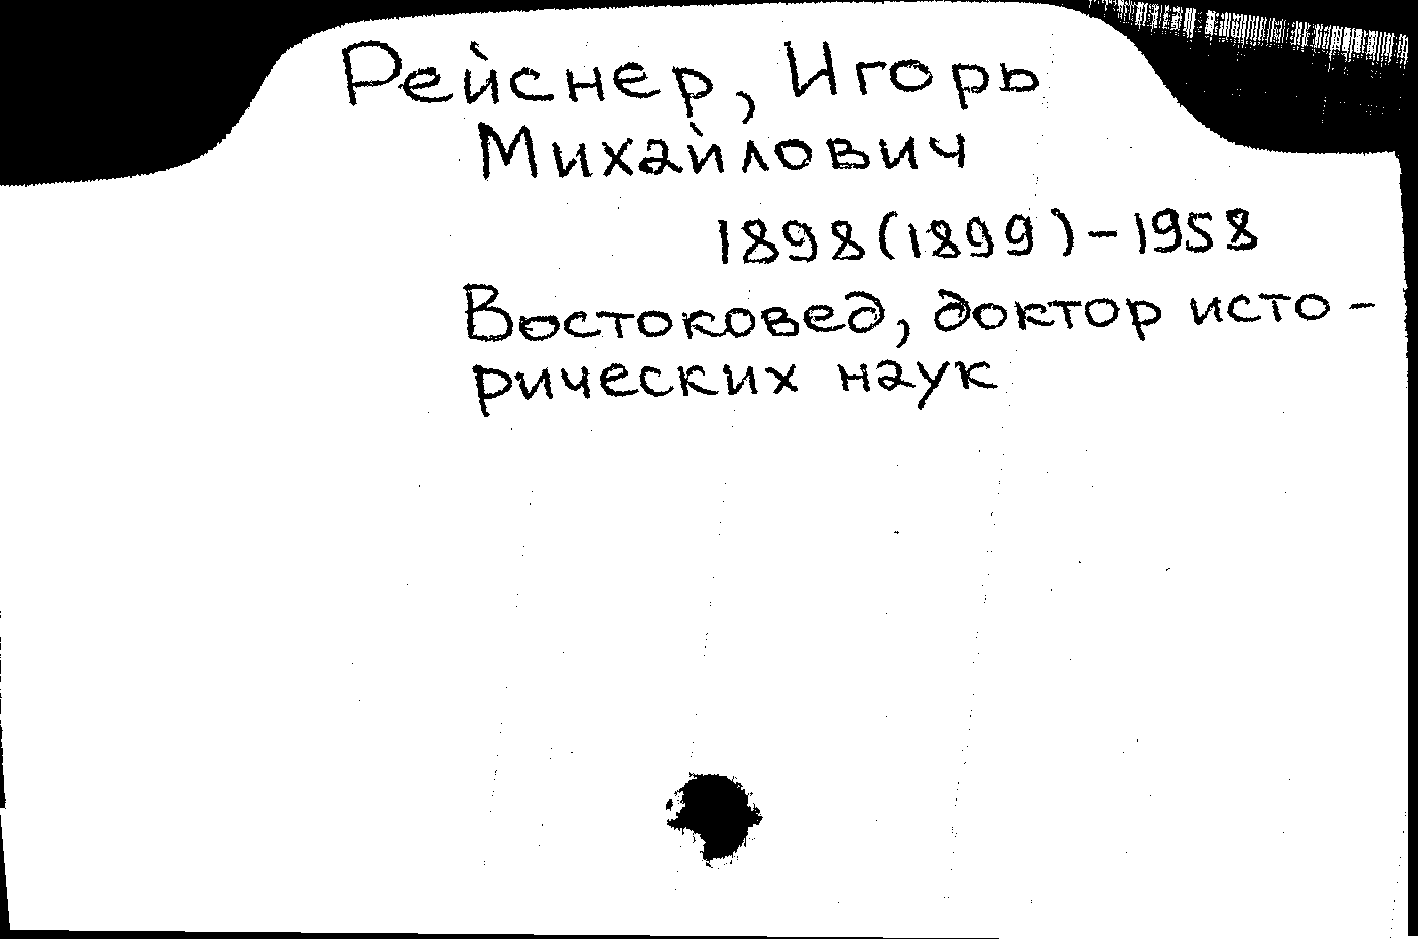 Рейснер, Игорь
Михайлович
1898(1899)-1958
Востоковед, доктор исто-
рических наук